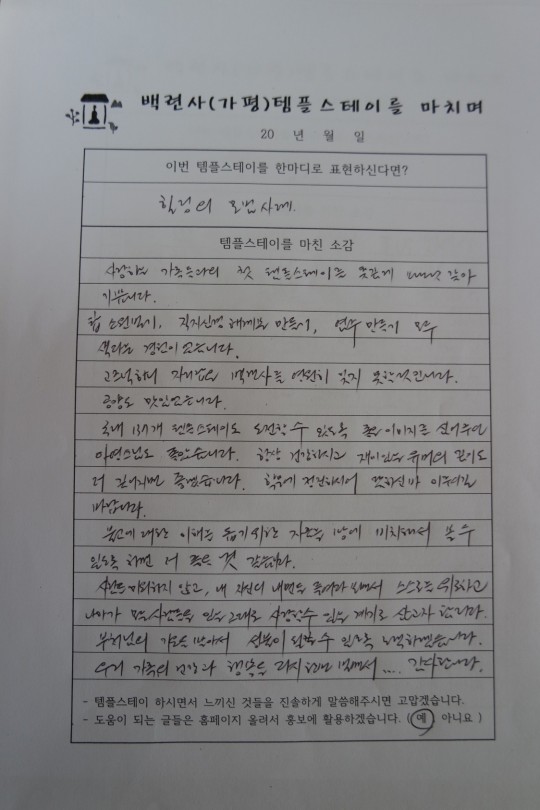 백련사(가평)템플스테이를 마치며
20 년 월 일
이번 템플스테이를 한마디로 표현하신다면?
힐링의 모범사례.
템플스테이를 마친 소감
사랑하는 가족들과의 첫 템플스테이를 뜻깊게 보내는 것 같아
기쁩니다.
탑 소원빌기, 직지신경 만들기, 염주 만들기 모두
색다른 경험이었습니다.
고즈넉하니 자리잡은 백련사를 영원히 잊지 못할것입니다.
공양도 맛있었습니다.
국내 137개 템플스테이도 도전할 수 있도록 좋은 이미지를 심어주신
아연스님도 좋았습니다. 항상 건강하시고 재미있는 유머의 깊이도
더 깊어지면 좋겠습니다. 학업에 정진하시어 뜻하신바 이루시길
바랍니다.
불교에 대한 이해를 돕기위한 자료를 방에 비치해서 볼 수
있도록 하면 더 좋을 것 같습니다.
사람을 미워하지 않고, 내 자신의 내면을 들여다 보면서 스스로를 위로하고
나아가 모든 사람들을 있는 그대로 사랑할수 있는 계기로 삼고자 합니다.
부처님의 가르침 받아서 성불이 될 수 있도록 노력하겠습니다.
우리 가족의 건강과 행복을 다시 한번 빌면서.... 감사합니다.
- 템플스테이 하시면서 느끼신 것들을 진솔하게 말씀해주시면 고맙겠습니다.
- 도움이 되는 글들은 홈페이지 올려서 홍보에 활용하겠습니다. ( 예 아니요 )